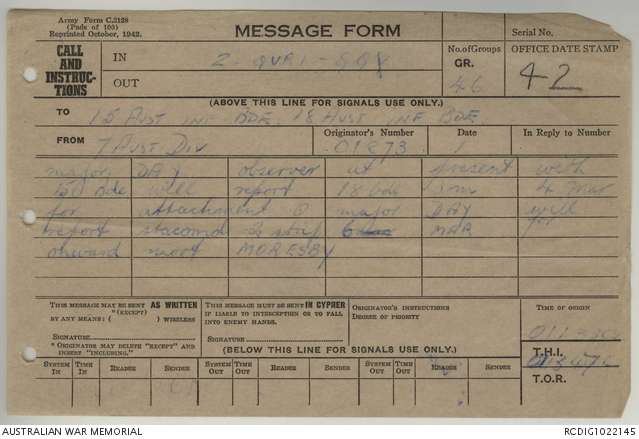 Army Form C.2128
(Pads of 100)
Reprinted October, 1942.
MESSAGE FORM
Serial No.
CALL
AND
INSTRUC-
TIONS
IN
OUT
No. of Groups
GR.
46
OFFICE DATE STAMP
42
(ABOVE THIS LINE FOR SIGNALS USE ONLY.)
TO 15 Aust inf BDE, 18 Aust inf BDE
FROM 7 Aust Div
Originator's Number
01873
Date
1
In Reply to Number
major DAY observer at present with
15 Bde will report 18 bde from 4 mar
for attachment @ major DAY will
report 6 MAR for
onward MORESBY
THIS MESSAGE MAY BE SENT AS WRITTEN
BY ANY MEANS *(EXCEPT) ( ) WIRELESS
SIGNATURE
* ORIGINATOR MAY DELETE "EXCEPT" AND INSERT "INCLUDING."
THIS MESSAGE MUST BE SENT IN CYPHER
IF LIABLE TO INTERCEPTION OR TO FALL INTO ENEMY HANDS.
SIGNATURE
ORIGINATOR'S INSTRUCTIONS
DEGREE OF PRIORITY
TIME OF ORIGIN
(BELOW THIS LINE FOR SIGNALS USE ONLY.)
T.H.I.
T.O.R.
SYSTEM IN TIME IN READER SENDER SYSTEM OUT TIME OUT READER SENDER SYSTEM OUT TIME OUT READER SENDER
AUSTRALIAN WAR MEMORIAL
RCDIG1022145